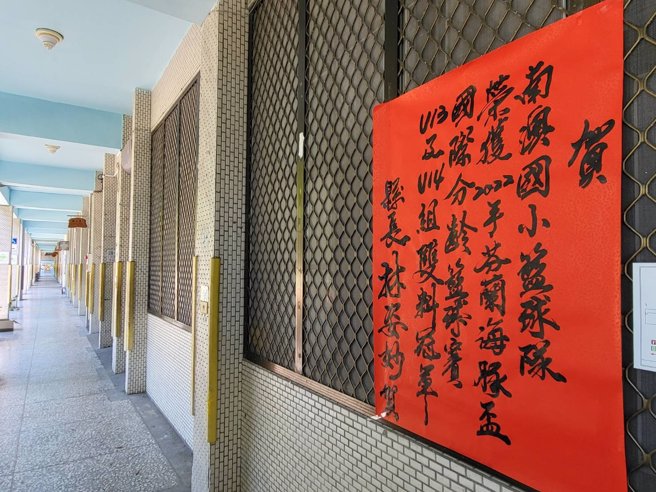 賀
南澳國小籃球隊
榮獲2022年芬蘭海豚盃
國際分齡籃球賽
U13及U14組雙料冠軍
縣長林姿妙賀